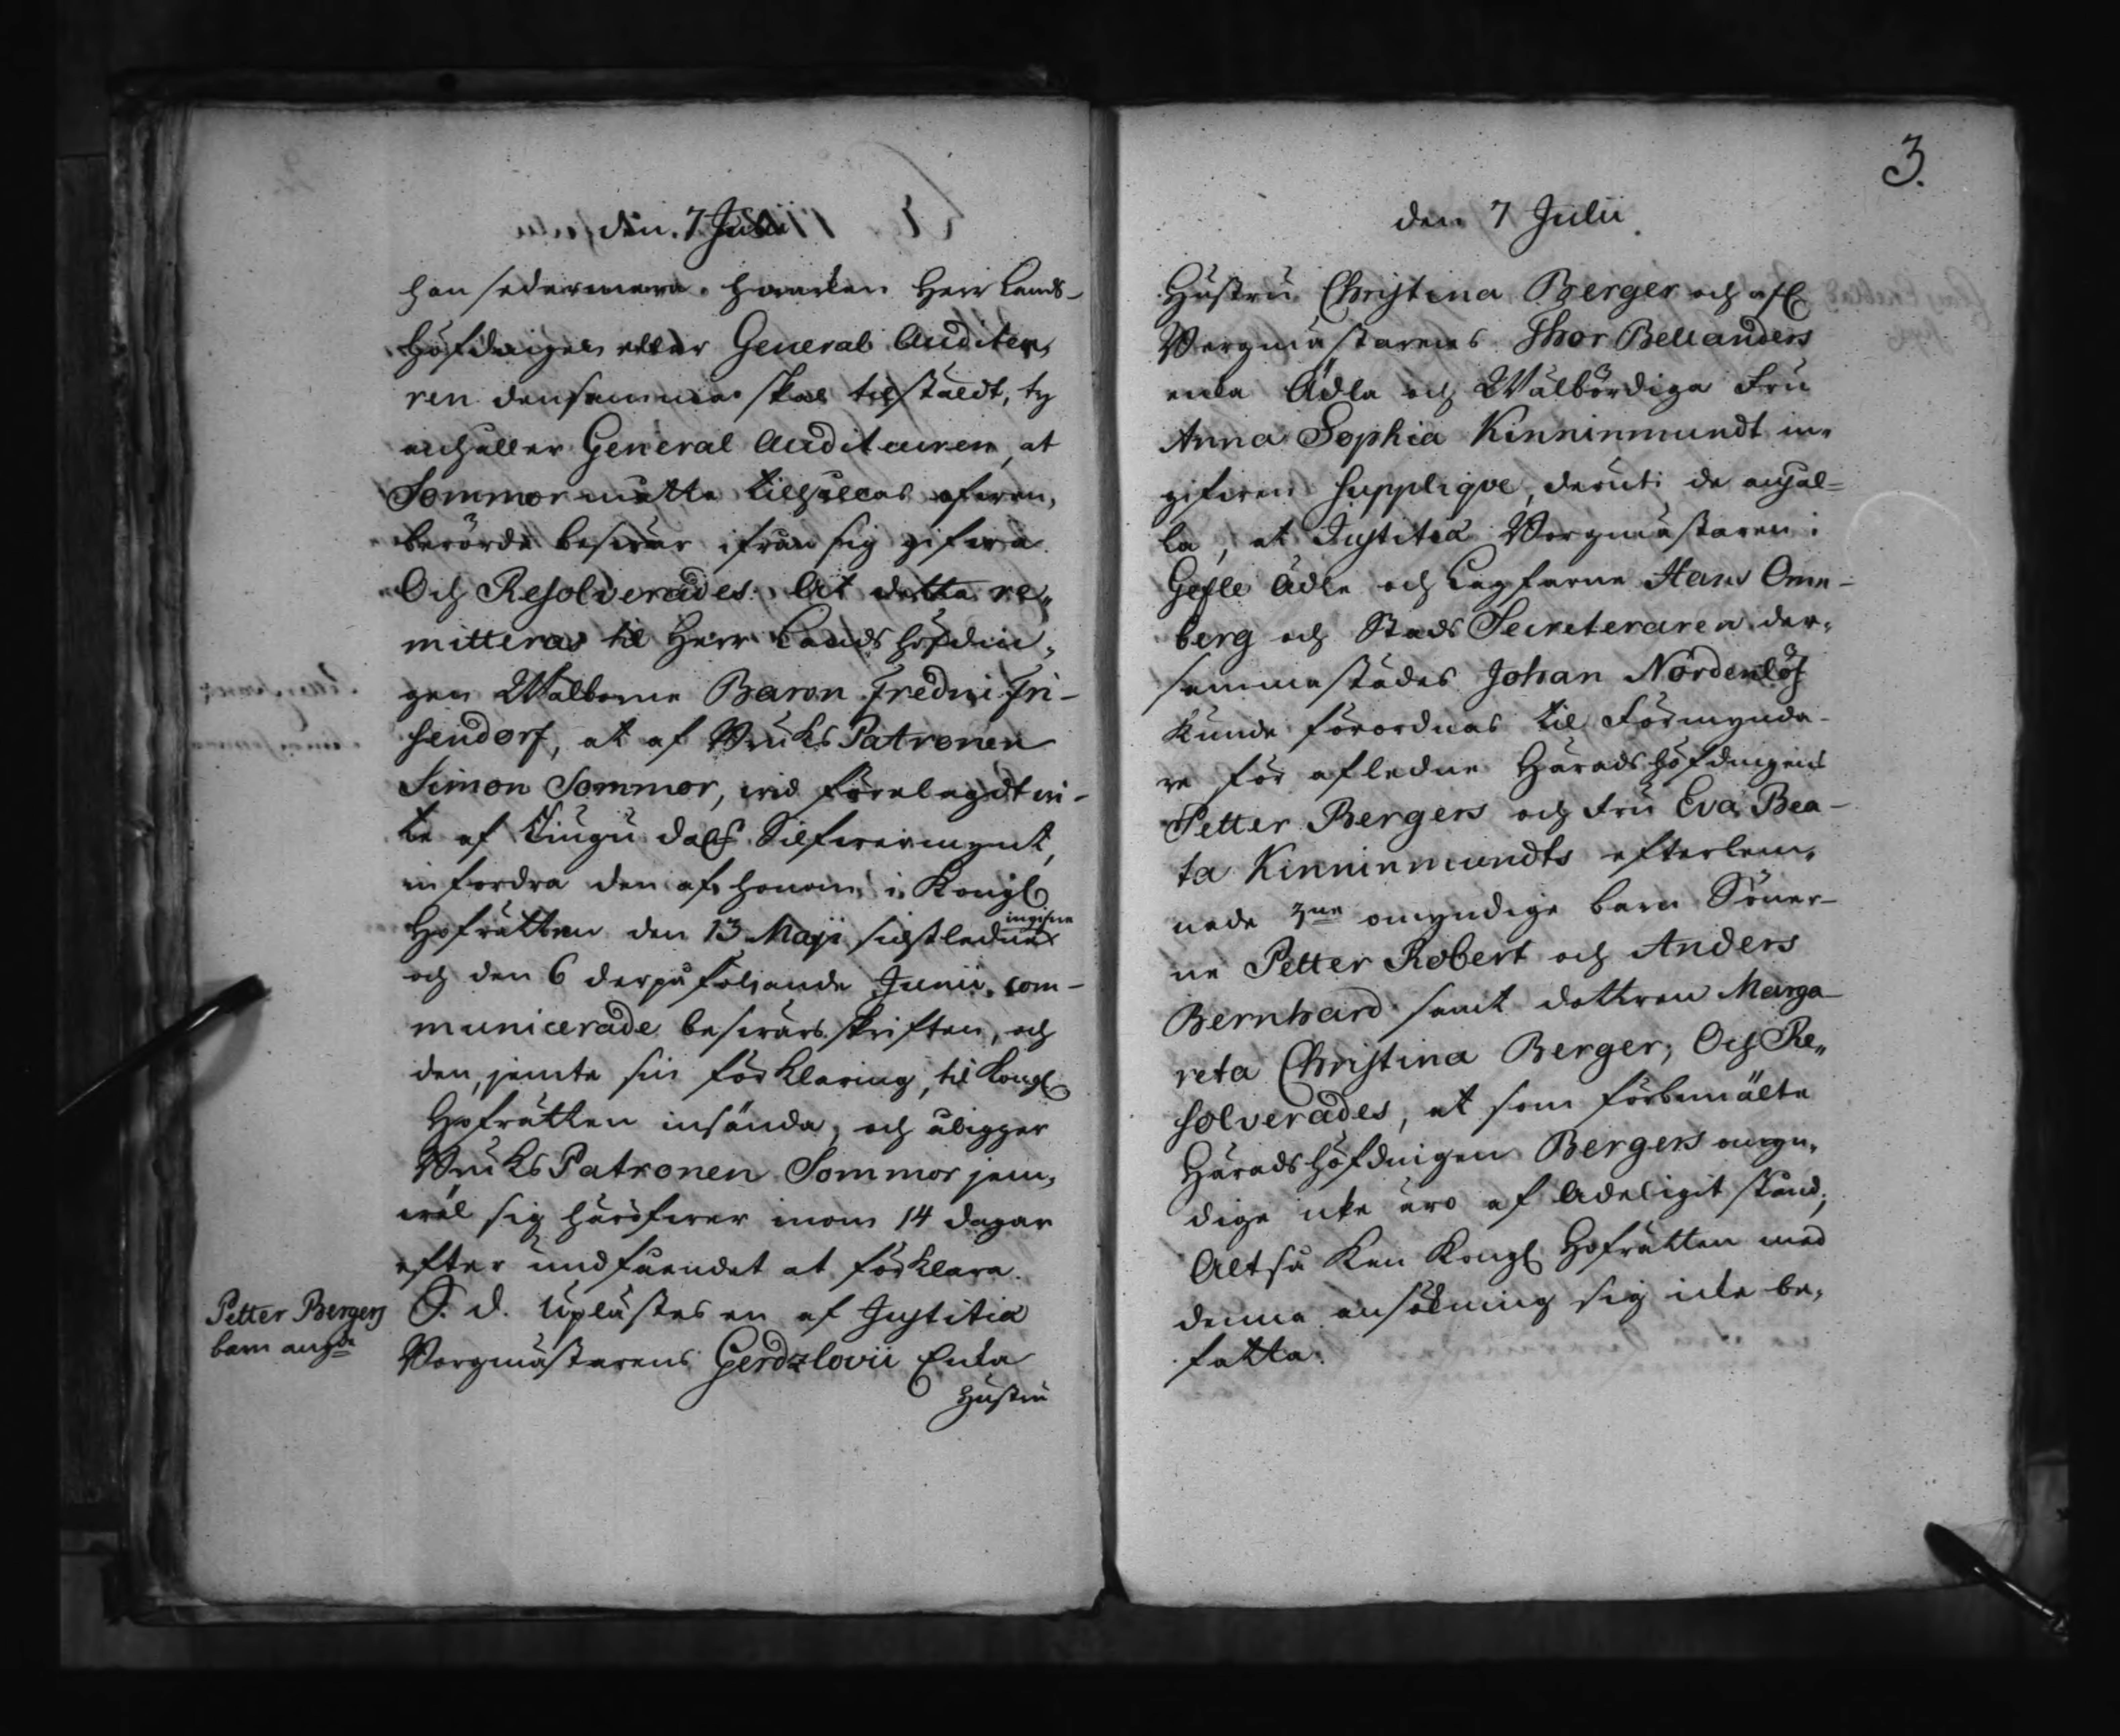 den. 7 Julii
han sedermera hwarken Herr Lands-
höfdingen eller General Auditeu,
ren densamma skal tilstäldt, ty
anhåller General Auditeuren, at
Sommor måtte tillhållas ofwan,
berörde beswär ifrån sig gifwa.
Och Resolverades: At detta re„
mitteras til Herr Landshöfdin„
gen Wälborne Baron Fredric Fri-
sendorf, at af Bruks Patronen
Simon Sommor, wid förelagdt wi-
te af Tiugu dalr Silfwermynt,
infordra den af honom i Kongl
Hofrätten den 13 Maji sidstledne ingifne
och den 6 derpåföljande Junii com-
municerade beswärs skriften, och
den, jemte sin förklaring, til Kongl
Hofrätten insända, och åligger
Bruks Patronen Sommor jem,
wäl sig häröfwer inom 14 dagar
efter undfåendet at förklara.
Petter Bergers
barn angde
S. d. Uplästes en af Justitiæ
Borgmästarens Gerdzlovii Enka
Hustru
3.
den 7 Julii
Hustru Christina Berger och afl
Borgmästarens Thor Bellanders
enka Ädla och Wälbördiga Fru
Anna Sophia Kinninmundt in„
gifwen Supplique, deruti de anhål-
la, at Justitiæ Borgmästaren i
Gefle Ädle och Lagfarne Hans Enn-
berg och Stads Secreteraren der„
sammastädes Johan Nordenlöf
kunde förordnas til Förmynda-
re för afledne Häradshöfdingens
Petter Bergers och Fru Eva Bea-
ta Kinninmundts efterlem„
nade 3ne omyndige barn Söner-
ne Petter Robert och Anders
Bernhard samt dottren Marga-
reta Christina Berger; Och Re„
solverades, at som förbemälte
Häradshöfdingen Bergers omyn„
dige icke äro af Adeligit stånd;
Altså kan Kongl Hofrätten med
denna ansökning sig icke be„
fatta.